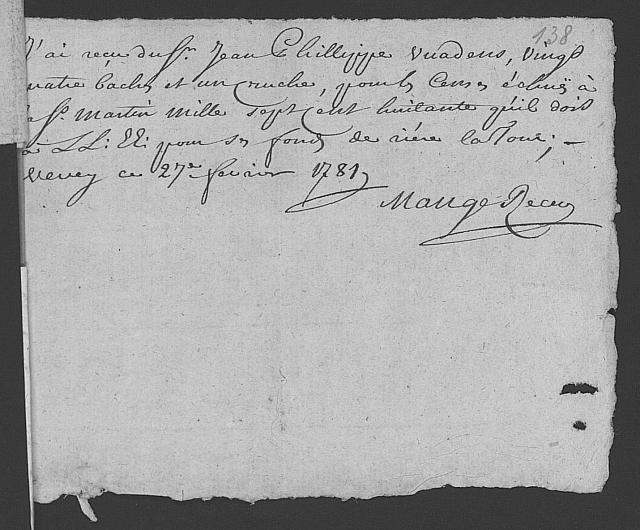 138
J'ai reçu du Sr. Jean Phillippe Vuadens, vingt
quatre bachs et un cruche, pour les Censes échuës à
la St. Martin mille sept cent huitante qu'il doit
à LL: EE: pour ses fonds de riére la Tour; –
Vevey ce 27e fevrier 1781
Mange Recevr